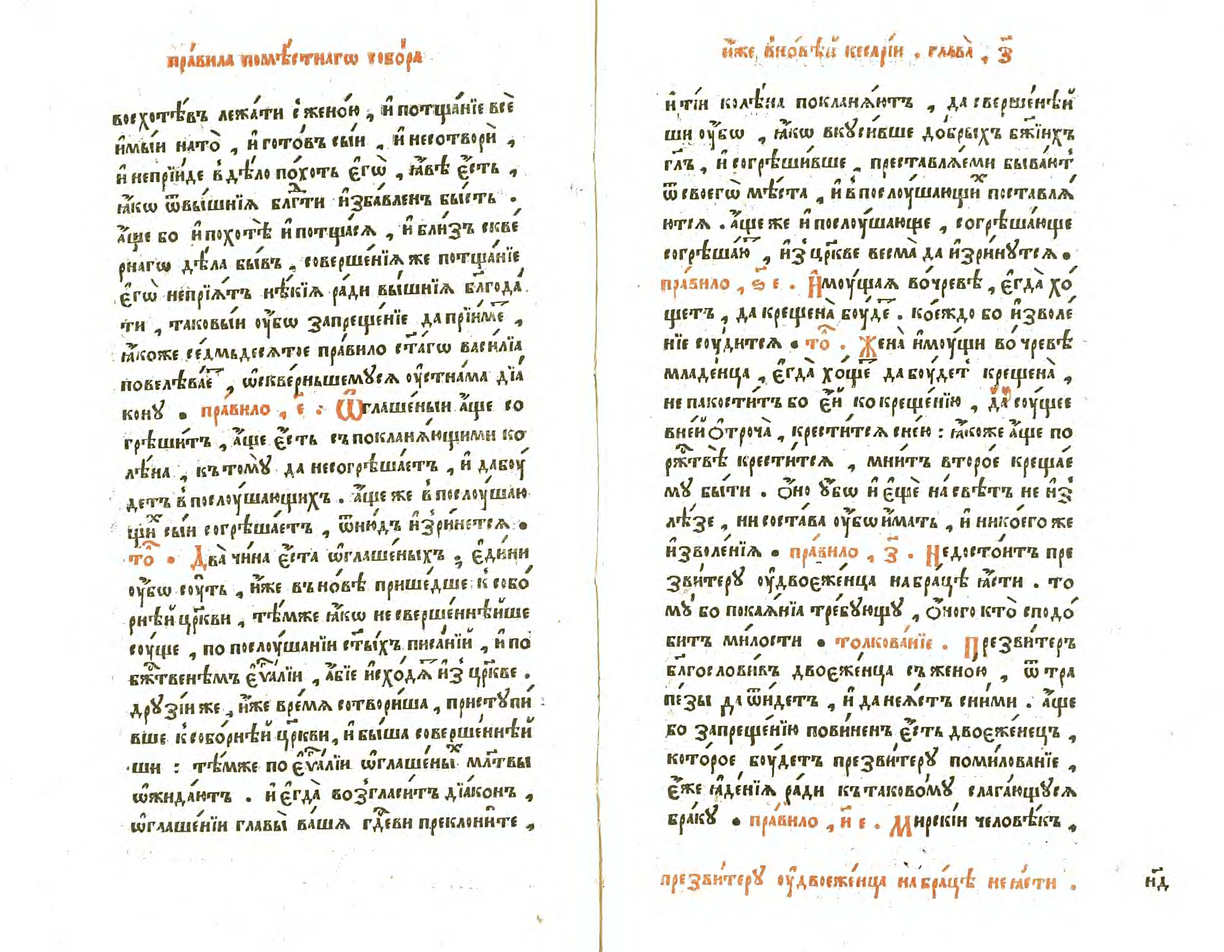 пра́вила помѣ́стнагѡ собо́ра
восхотѣ́въ лежа́ти с̾жено́ю , и҆ потща́нїе всѐ
и҆мы́и нато̀ , и҆ гото́въ сы́и , и҆ несотворѝ ,
и҆ непрїи́де в̾дѣ́ло по́хоть є҆гѡ̀ , ꙗ҆́вѣ є҆́сть ,
ꙗ҆́кѡ ѿвы́шнїѧ блг҃ти и҆зба́вленъ бы́сть .
а҆́ще бо и҆ похотѣ̀ и҆ потща́сѧ , и҆ бли́зъ скве
рнагѡ дѣ́ла бы́въ , соверше́нїѧ же потща́нїе
є҆гѡ̀ непрїѧ́тъ нѣ́кїѧ ради вы́шнїѧ бл҃года́
ти , таковы́и ᲂу҆́бѡ запреще́нїе да прїи́ме ,
ꙗ҆́коже се́дмьдесѧтое пра́вило ст҃а́гѡ васи́лїа
повелѣва́е , ѡ҆скве́рньшемꙋсѧ ᲂу҆стна́ма дїа́
конꙋ . пра́вило , є҃ . Ѡ҆глаше́ныи а҆́ще со
грѣши́тъ , а҆́ще є҆́сть съ покланѧ́ющими ко
лѣ́на , къ томꙋ̀ да несогрѣша́етъ , и҆ дабоу́
детъ в̾послоу́шающихъ . а҆́ще же в̾послоу́шаю
щиⷯ сы́и согрѣша́етъ , ѿню́дъ и҆зри́нетсѧ .
то́ . Два̀ чи́на є҆́ста ѡ҆глаше́ныхъ ; є҆ди́ни
ᲂу҆́бѡ соу́ть , и҆́же въ но́вѣ прише́дше к̾ собо́
рнѣй цр҃кви , тѣ́мже ꙗ҆́кѡ не сверше́ннѣйше
соу́ще , по послоу́шанїи ст҃ы́хъ писа́нїй , и҆ по
бж҃твенѣмъ є҆ѵⷢ҇а́лїи , а҆́бїе и҆схо́дѧ и҆з̾ цр҃кве .
дрꙋзі́и же , и҆́же вре́мѧ сотвори́ша , пристꙋпи́
вше к̾ собо́рнѣй цр҃кви , и҆ бы́ша соверше́ннѣй
ши : тѣ́мже по є҆ѵⷢ҇а́лїи ѡ҆глаше́ныⷯ мл҃твы
ѡ҆жида́ютъ . и҆ є҆гда̀ возгласи́тъ дїа́конъ ,
ѡ҆глаше́нїи главы̀ ва́шѧ гд҃еви преклони́те ,
и҆́же в̾но́вѣй кесарі́и . глава̀ , з҃
и҆ ті́и колѣ́на покланѧ́ютъ , да сверше́нѣй
ши ᲂу҆́бѡ , ꙗ҆́кѡ вкꙋси́вше до́брыхъ бж҃їихъ
гл҃ъ , и҆ согрѣши́вше , преставлѧ́еми быва́ют
ѿ своегѡ̀ мѣ́ста , и҆ в̾послоу́шающиⷯ поставлѧ́
ютсѧ . а҆́ще же и҆ послоу́шающе , согрѣша́юще
согрѣша́ю , и҆з̾ цр҃кве весма̀ да и҆зри́нутсѧ .
пра́вило , ѕ҃ е . И҆моу́щаѧ во чре́вѣ , є҆гда̀ хо́
щетъ , да креще́на боу́де . ко́еждо бо и҆зволе́
нїе соу́дитсѧ . то́ . Жена̀ и҆моу́щи во чре́вѣ
младе́нца , є҆гда̀ хо́ще да боу́дет креще́на ,
не пакости́тъ бо є҆́й ко креще́нїю , да̀ соу́щее
вне́й ѻ҆троча̀ , крести́тсѧ сне́ю : ꙗ҆́коже а҆́ще по
рж҃твѣ̀ крести́тсѧ , мни́тъ второ́е креща́е
мꙋ бы́ти . ѻ҆́но ᲂу҆́бѡ и҆ є҆щѐ на свѣ́тъ не и҆з̾
лѣ́зе , ни соста́ва ᲂу҆́бѡ и҆мать , и҆ никоего же
и҆зволе́нїѧ . пра́вило , з҃ . Недосто́итъ пре
зви́терꙋ ᲂу҆ двоеже́нца на бра́цѣ ꙗ҆́сти . то
мꙋ́ бо покаѧ́нїа тре́бующꙋ , ѻ҆́ного кто̀ сподо́
битъ ми́лости . толкова́нїе . Презви́теръ
бл҃гослови́въ двоеже́нца съ жено́ю , ѿ тра
пе́зы да ѿи́детъ , и҆ да неꙗ́стъ сни́ми . а҆́ще
бо запреще́нїю пови́ненъ є҆́сть двоеже́нецъ ,
кото́рое боу́детъ презви́терꙋ поми́лованїе ,
є҆́же ꙗ҆де́нїѧ ра́ди къ таково́мꙋ слага́ющꙋсѧ
бра́кꙋ . пра́вило , и҃ е . Мирскі́и человѣ́къ ,
презви́терꙋ ᲂу҆ двоеже́нца на бра́цѣ не ꙗ҆́сти .
нд҃